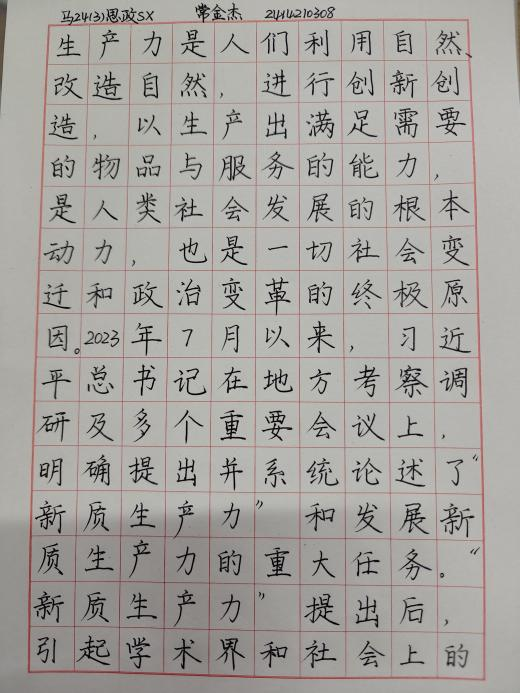 马2413)思政SX 常金杰 2414210308
生产力是人们利用自然、
改造自然，进行创新创
造，以生产出满足需要
的物品与服务的能力，
是人类社会发展的根本
动力，也是一切社会变
迁和政治变革的终极原
因。2023年7月以来，习近
平总书记在地方考察调
研及多个重要会议上，
明确提出并系统论述了“
新质生产力”和发展新
质生产力的重大任务。“
新质生产力”提出后，
引起学术界和社会上的